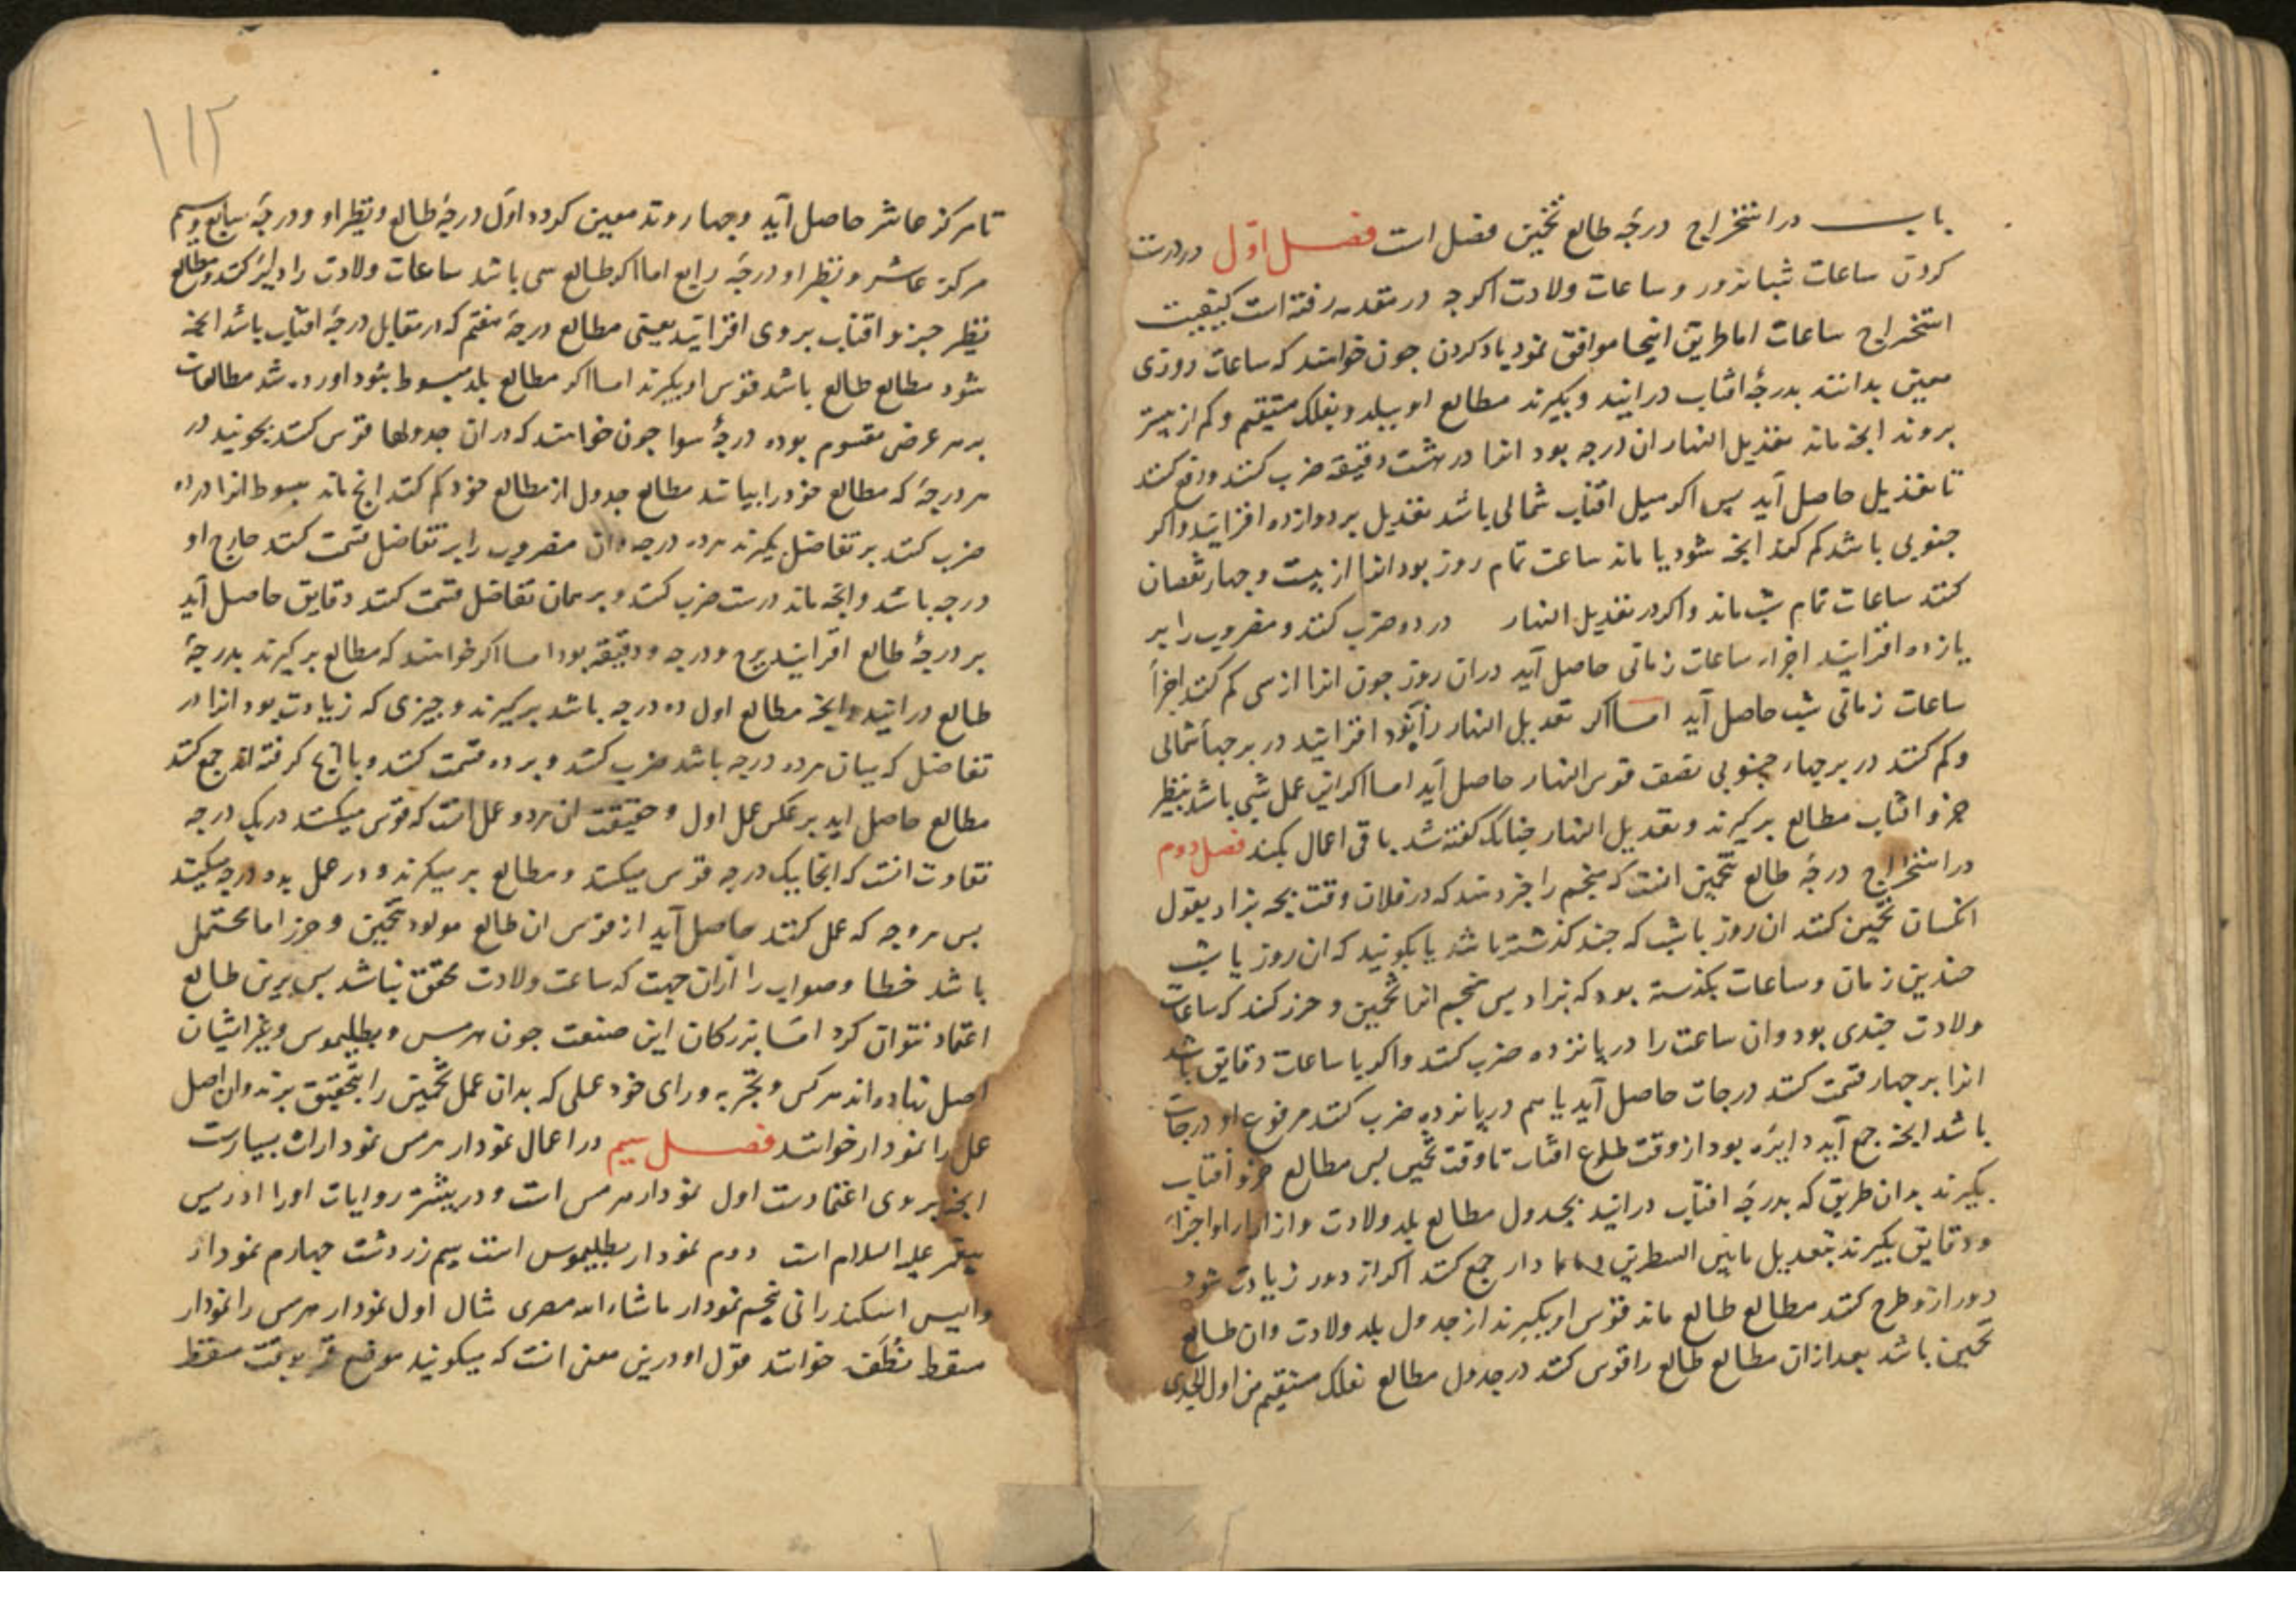 باب در استخراج درجهٔ طالع تخمین فصل است فصل اوّل در درست
کردن ساعات شبانروز و ساعات ولادت اکرچه در مقدمه رفته است کیفیت
استخراج ساعات اما طریق اینجا موافق نمود یاد کردن چون خواهند که ساعات روزی
معین بدانند بدرجهٔ افتاب درایند و بکیرند مطالع او ببلد و بفلک مستقیم و کم از بیشتر
بروند انجه ماند تعدیل النهار ان درجه بود انرا در هشت دقیقه ضرب کنند و رفع کنند
تا تعدیل حاصل آید پس اکر میل افتاب شمالی باشد تعدیل بر دوازده افزایند و اکر
جنوبی باشد کم کنند انجه شود یا ماند ساعت تمام روز بود انرا از بیست و جهار نقصان
کنند ساعات تمام شب ماند و اکر در تعدیل النهار در دو ضرب کنند و مضروب را بر
یازده افزایند اجزاء ساعات زمانی حاصل آید دران روز جون انرا از سی کم کنند اجزأ
ساعات زمانی شب حاصل آید اما اکر تعدیل النهار را بنود افزایند در برجهأ شمالی
و کم کنند در برجهاء جنوبی نصف قوس النهار حاصل آید اما اکر این عمل شبی باشد بنظیر
جزو افتاب مطالع برکیرند و تعدیل النهار جنانک کفته شد باقی اعمال بکند فصل دوم
در استخراج درجهٔ طالع تخمین انست که منجم را خبر دهند که در فلان وقت بچه بزاد بقول
انکسان تخمین کنند ان روز یا شب که جند کذشته باشد یا بکویند که ان روز یا شب
جندین زمان و ساعات بکذسته بود که بزاد بس منجم انرا تخمین و حرز کند که ساعات
ولادت جندی بود وان ساعت را در پانزده ضرب کنند واکر با ساعات دقایق باشد
انرا بر جهار قسمت کنند درجات حاصل آید یا هم در پانزده ضرب کنند مرفوع او درجات
باشد انجه جمع آید دایره بود از وقت طلوع افتاب تا وقت تخمین بس مطالع جزو افتاب
بکیرند بدان طریق که بدرجهٔ افتاب درایند بجدول مطالع بلد ولادت و از ادار او اجزاء
و دقایق بکیرند بتعدیل مابین السطرین دار جمع کنند اکر از دور زیادت شود
دور ازو طرح کنند مطالع طالع ماند قوس او بکیرند از جدول بلد ولادت وان طالع
تخمین باشد بعد ازان مطالع طالع را قوس کنند در جدول مطالع بفلک مستقیم من اول الجدی
۱۱۲
تا مرکز عاشر حاصل آید و جهار وتد معین کردد اوّل درجهٔ طالع و نظیر او و درجهٔ سابع و سیم
مرکز عاشر و نظیر او درجهٔ رابع اما اکر طالع سی باشد ساعات ولادت را دایره کنند و مطالع
نظیر جزو افتاب بروی افزایند یعنی مطالع درجهٔ هفتم که در مقابل درجهٔ افتاب باشد انجه
شود مطالع طالع باشد قوس او بکیرند اما اکر مطالع بلد مبسوط بنود اورده شد مطالعات
بر عرض مقسوم بوده درجهٔ سوا جون خواهند که دران جدولها قوس کنند بجویند در
هر درجهٔ که مطالع خود را بیابند مطالع جدول از مطالع خود کم کنند انج ماند مبسوط انرا در ده
ضرب کنند بر تفاضل یکیرند هر ده درجه وان مضروب را بر تفاضل قسمت کنند خارج او
درجه باشد وانجه ماند درست ضرب کنند و بر همان تفاضل قسمت کنند دقایق حاصل آید
بر درجهٔ طالع افزایند برج و درجه و دقیقه بود اما اکر خواهند که مطالع برکیرند بدرجهٔ
طالع درایند وانجه مطالع اول ده درجه باشد برکیرند و جیزی که زیادت بود انرا در
تفاضل که بیان هر ده درجه باشد ضرب کنند و بر ده قسمت کنند و با انج کرفته اند جمع کنند
مطالع حاصل اید بر عکس عمل اول و حقیقت ان هر دو عمل انست که قوس میکنند در یک درجه
تفاوت انست که انجا بیک درجه قوس میکنند و مطالع بر میکرند و در عمل بده درجه میکنند
بس هر وجه که عمل کنند حاصل آید از قوس ان طالع مولود تخمین و حرز اما محتمل
باشد خطا و صواب را ازان جهت که ساعت ولادت محقق نباشد بس برین طالع
اعتماد نتوان کرد امّا بزرکان این صنعت جون هرمس و بطلیموس و غیر ایشان
اصل نهاده اند هر کس و تجربه و رای خود عملی که بدان عمل تخمین را بتحقیق برند وان اصل
عمل را نمودار خوانند فصل سیم در اعمال نمودار هرمس نموداران بسیارست
انجه بر وی اعتمادست اول نمودار هرمس است و در بیشتر روایات او را ادریس
بیغمبر علیه السلام است دوم نمودار بطلیموس است سیم زردشت جهارم نمودار
والیس اسکندرانی پنجم نمودار ماشاء الله مصری مثال اول نمودار هرمس را نمودار
مسقط نطفه خوانند قول او درین معنی انست که میکویند موضع قمر بوقت مسقط